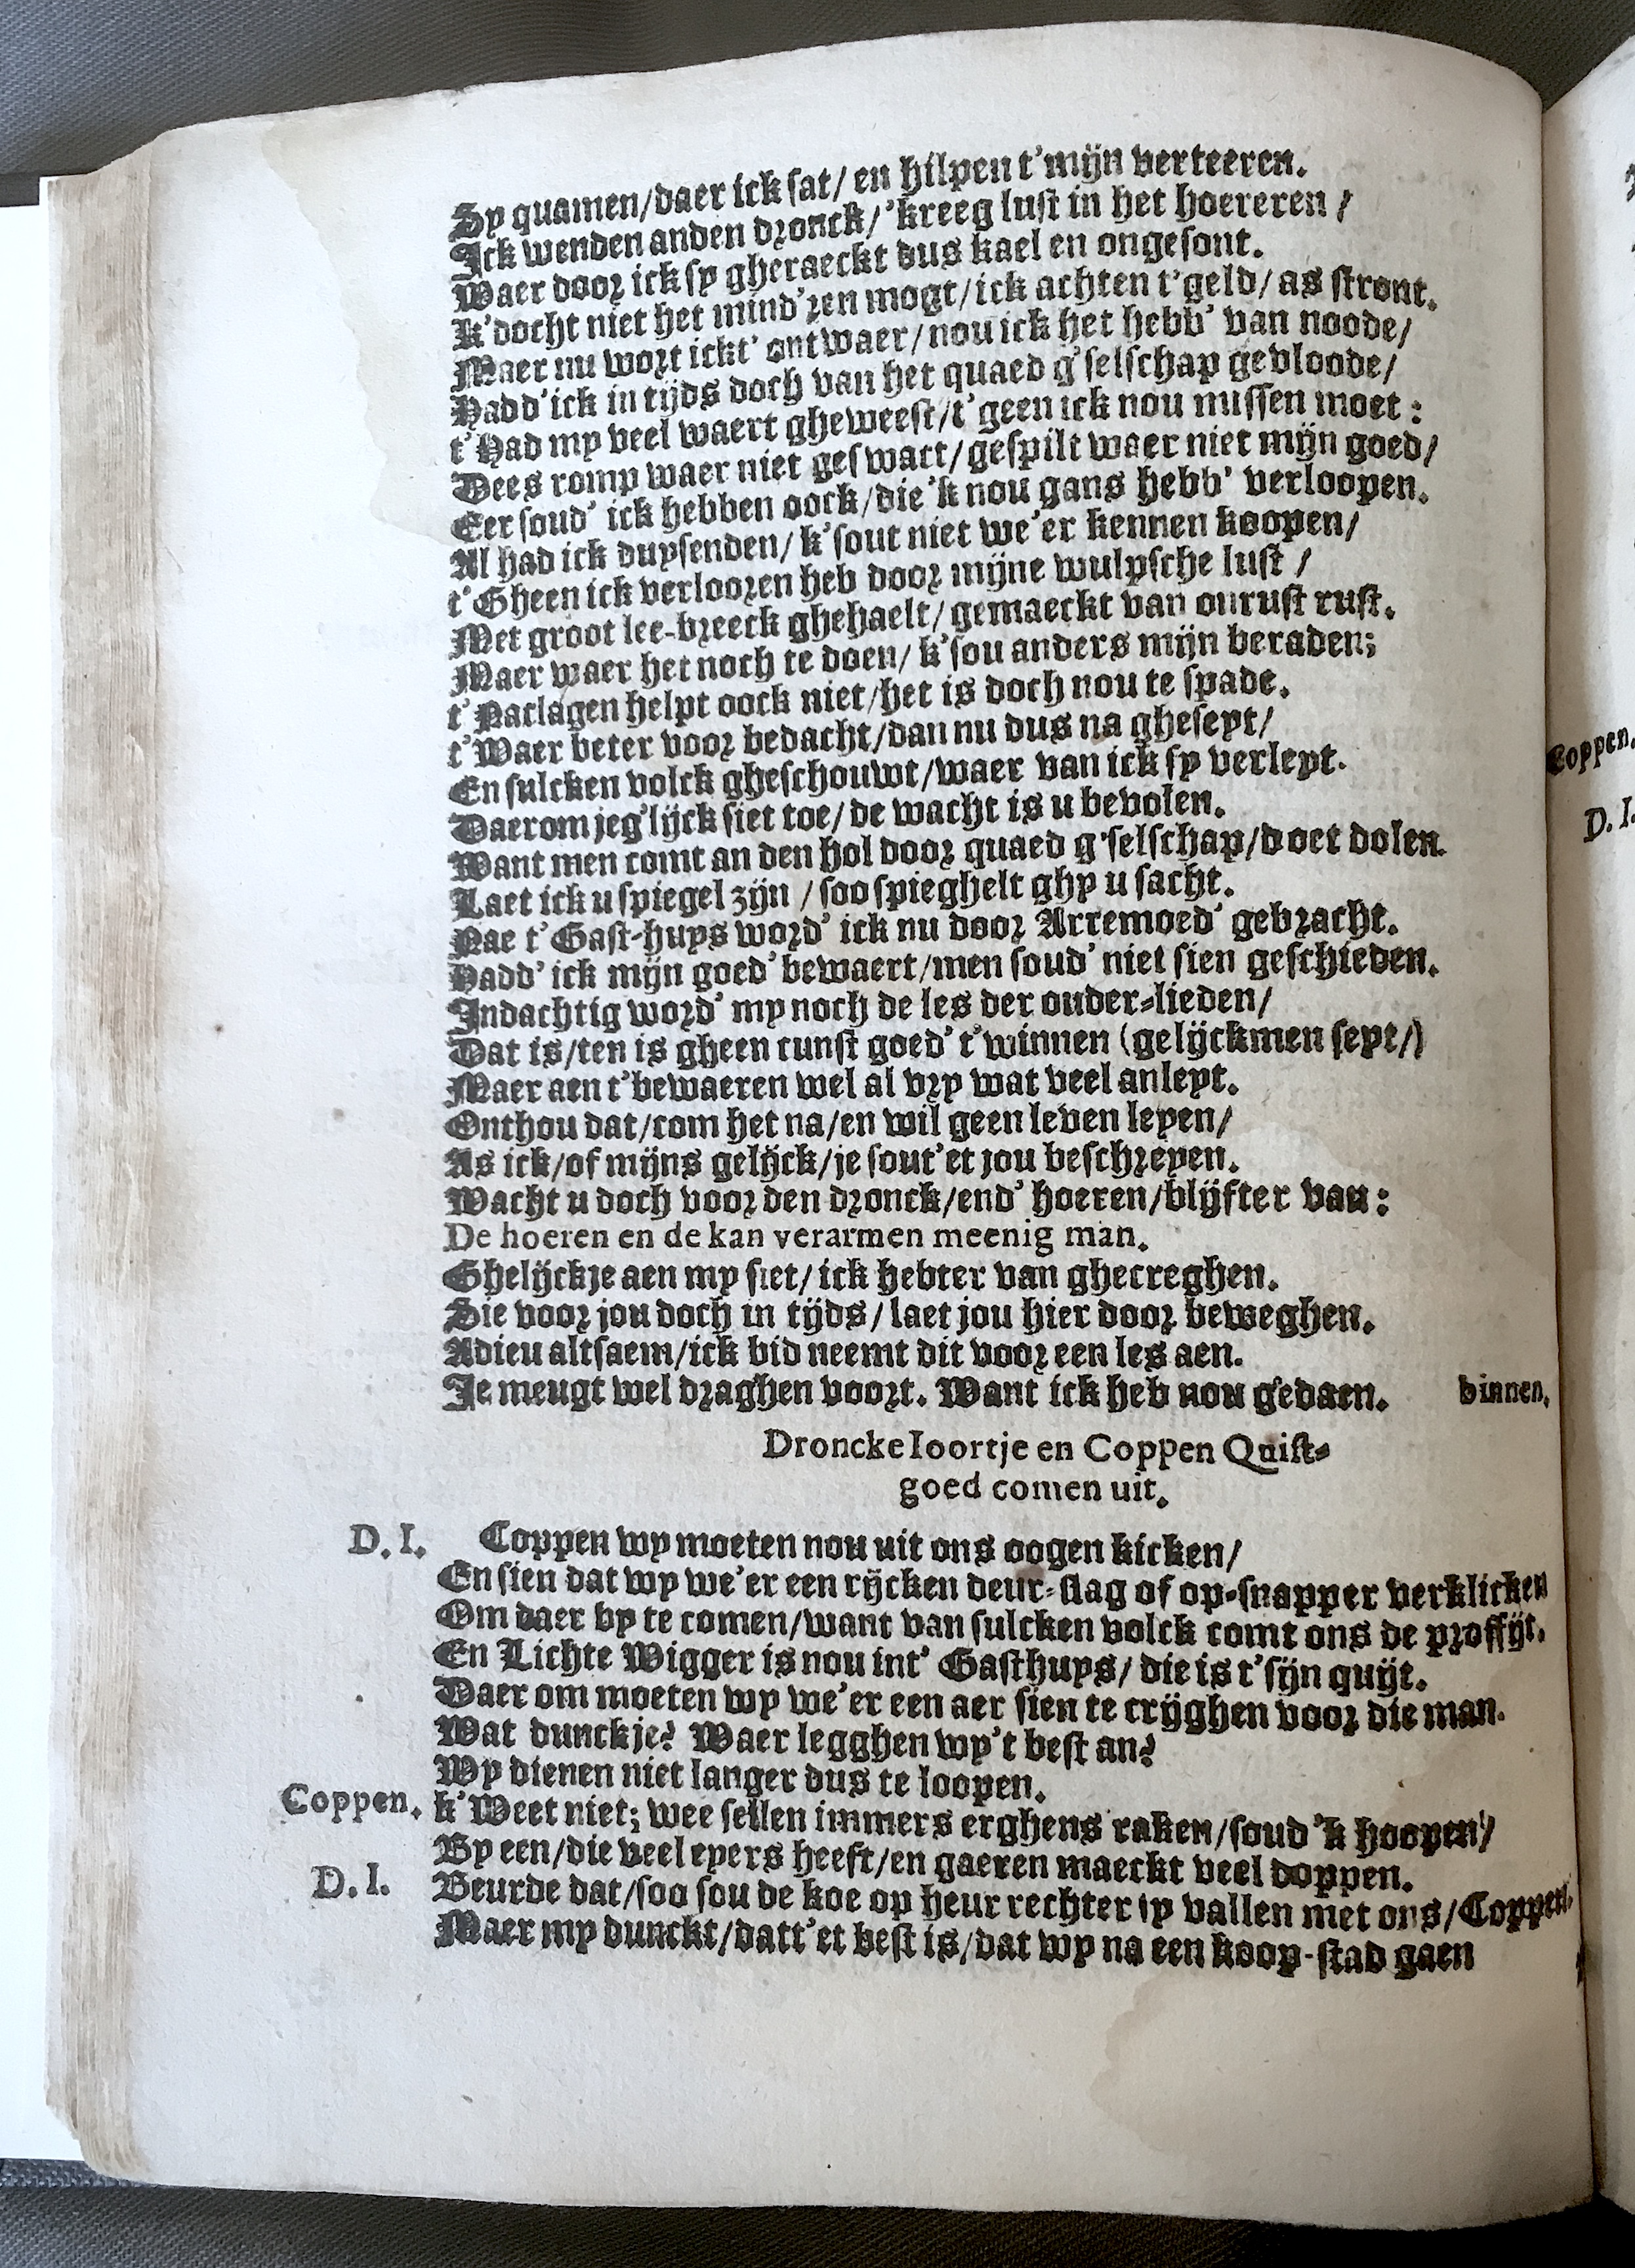 Sy quamen/daer ick sat/ en hilpen t'mijn verteeren.
Ick wenden anden dronck/'kreeg lust in het hoereren /
Waer door ick sy gheraeckt dus kael en ongesont.
K'docht niet het mind'ren mogt/ick achten t'geld/ as stront.
Maer nu wort ickt' ontwaer/nou ick het hebb' van noode/
Hadd'ick in tijds doch van het quaed g'selschap gevloode/
t'Had my veel waert gheweest/t'geen ick nou missen moet :
Dees romp waer niet geswact/gespilt waer niet mijn goed/
Eer soud' ick hebben oock/die'k nou gans hebb' verloopen.
Al had ick duysenden/k'sout niet we'er kennen koopen/
t'Gheen ick verlooren heb door mijne wulpsche lust /
Met groot lee-breeck ghehaelt/gemaeckt van onrust rust.
Maer waer het noch te doen/k'sou anders mijn beraden;
t'Naclagen helpt oock niet/het is doch nou te spade.
t'Waer beter voor bedacht/dan nu dus na gheseyt/
En sulcken volck gheschouwt/waer van ick sy verleyt.
Daerom jeg'lijck siet toe/de wacht is u bevolen.
Want men comt an den hol door quaed g'selschap/doet dolen.
Laet ick u spiegel zijn / soo spieghelt ghy u sacht.
Nae t'Gast-huys word' ick nu door Arremoed' gebracht.
Hadd' ick mijn goed' bewaert/men soud' niet sien geschieden.
Indachtig word' my noch de les der ouder-lieden/
Dat is/ten is gheen cunst goed' t'winnen (gelijckmen seyt/)
Maer aen t'bewaeren wel al vry wat veel anleyt.
Onthou dat/com het na/en wil geen leven leyen/
As ick/of mijns gelijck/je sout'et jou beschreyen.
Wacht u doch voor den dronck/end' hoeren/blijfter van :
De hoeren en de kan verarmen meenig man.
Ghelijckje aen my siet/ick hebter van ghecreghen.
Sie voor jou doch in tijds/laet jou hier door beweghen.
Adieu altsaem/ick bid neemt dit voor een les aen.
Je meugt wel draghen voort. Want ick heb nou gedaen. binnen.
Droncke Ioortje en Coppen Quist-
goed comen uit.
D. I. Coppen wy moeten nou uit ons oogen kicken/
En sien dat wy we'er een rijcken deur-slag of op-snapper verklicken
Om daer by te comen/want van sulcken volck comt ons de proffijt.
En Lichte Wigger is nou int' Gasthuys/die is t'sijn quijt.
Daer om moeten wy we'er een aer sien te crijghen voor die man.
Wat dunckje? Waer legghen wy't best an?
Wy dienen niet langer dus te loopen.
Coppen. k'Weet niet; wee sellen immers erghens raken/soud'k hoopen/
By een/die veel eyers heeft/en gaeren maeckt veel doppen.
D. I. Beurde dat/soo sou de koe op heur rechter sy vallen met ons/Coppen.
Maer my dunckt/datt'et best is/dat wy na een koop-stad gaen
Coppen.
D. I.